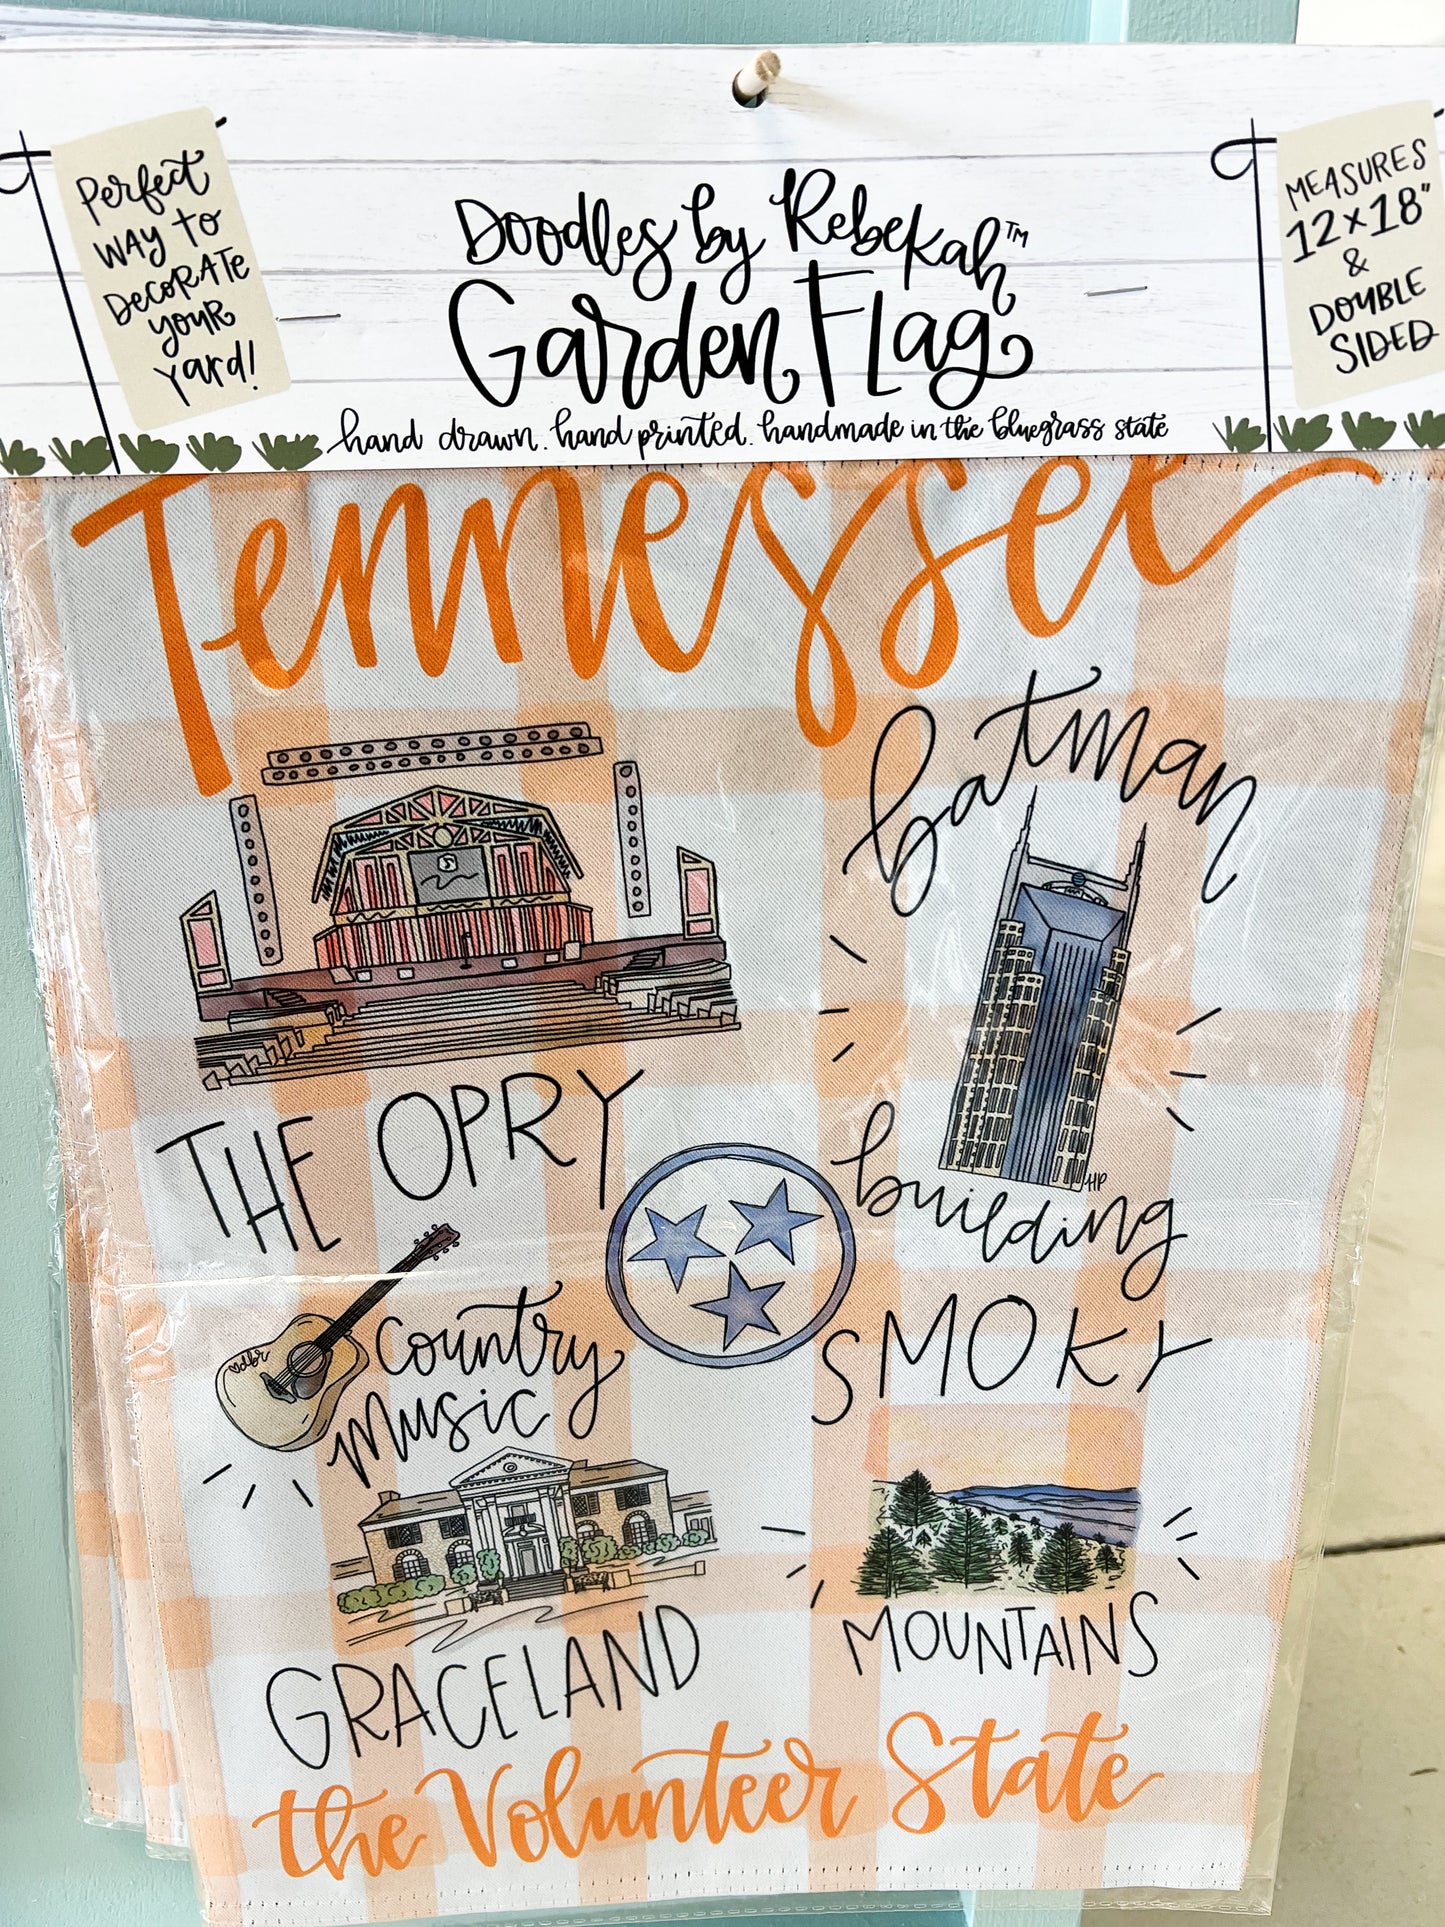 Perfect
WAY TO
DECORATE
YOUR
YARD!
Doodles by Rebekah™
Garden Flag
hand drawn. hand printed. handmade in the bluegrass state
MEASURES
12x18"
&
DOUBLE
SIDED
Tennessee
THE OPRY
batman
building
HP
dbr
Country
Music
SMOKY
MOUNTAINS
GRACELAND
the Volunteer State